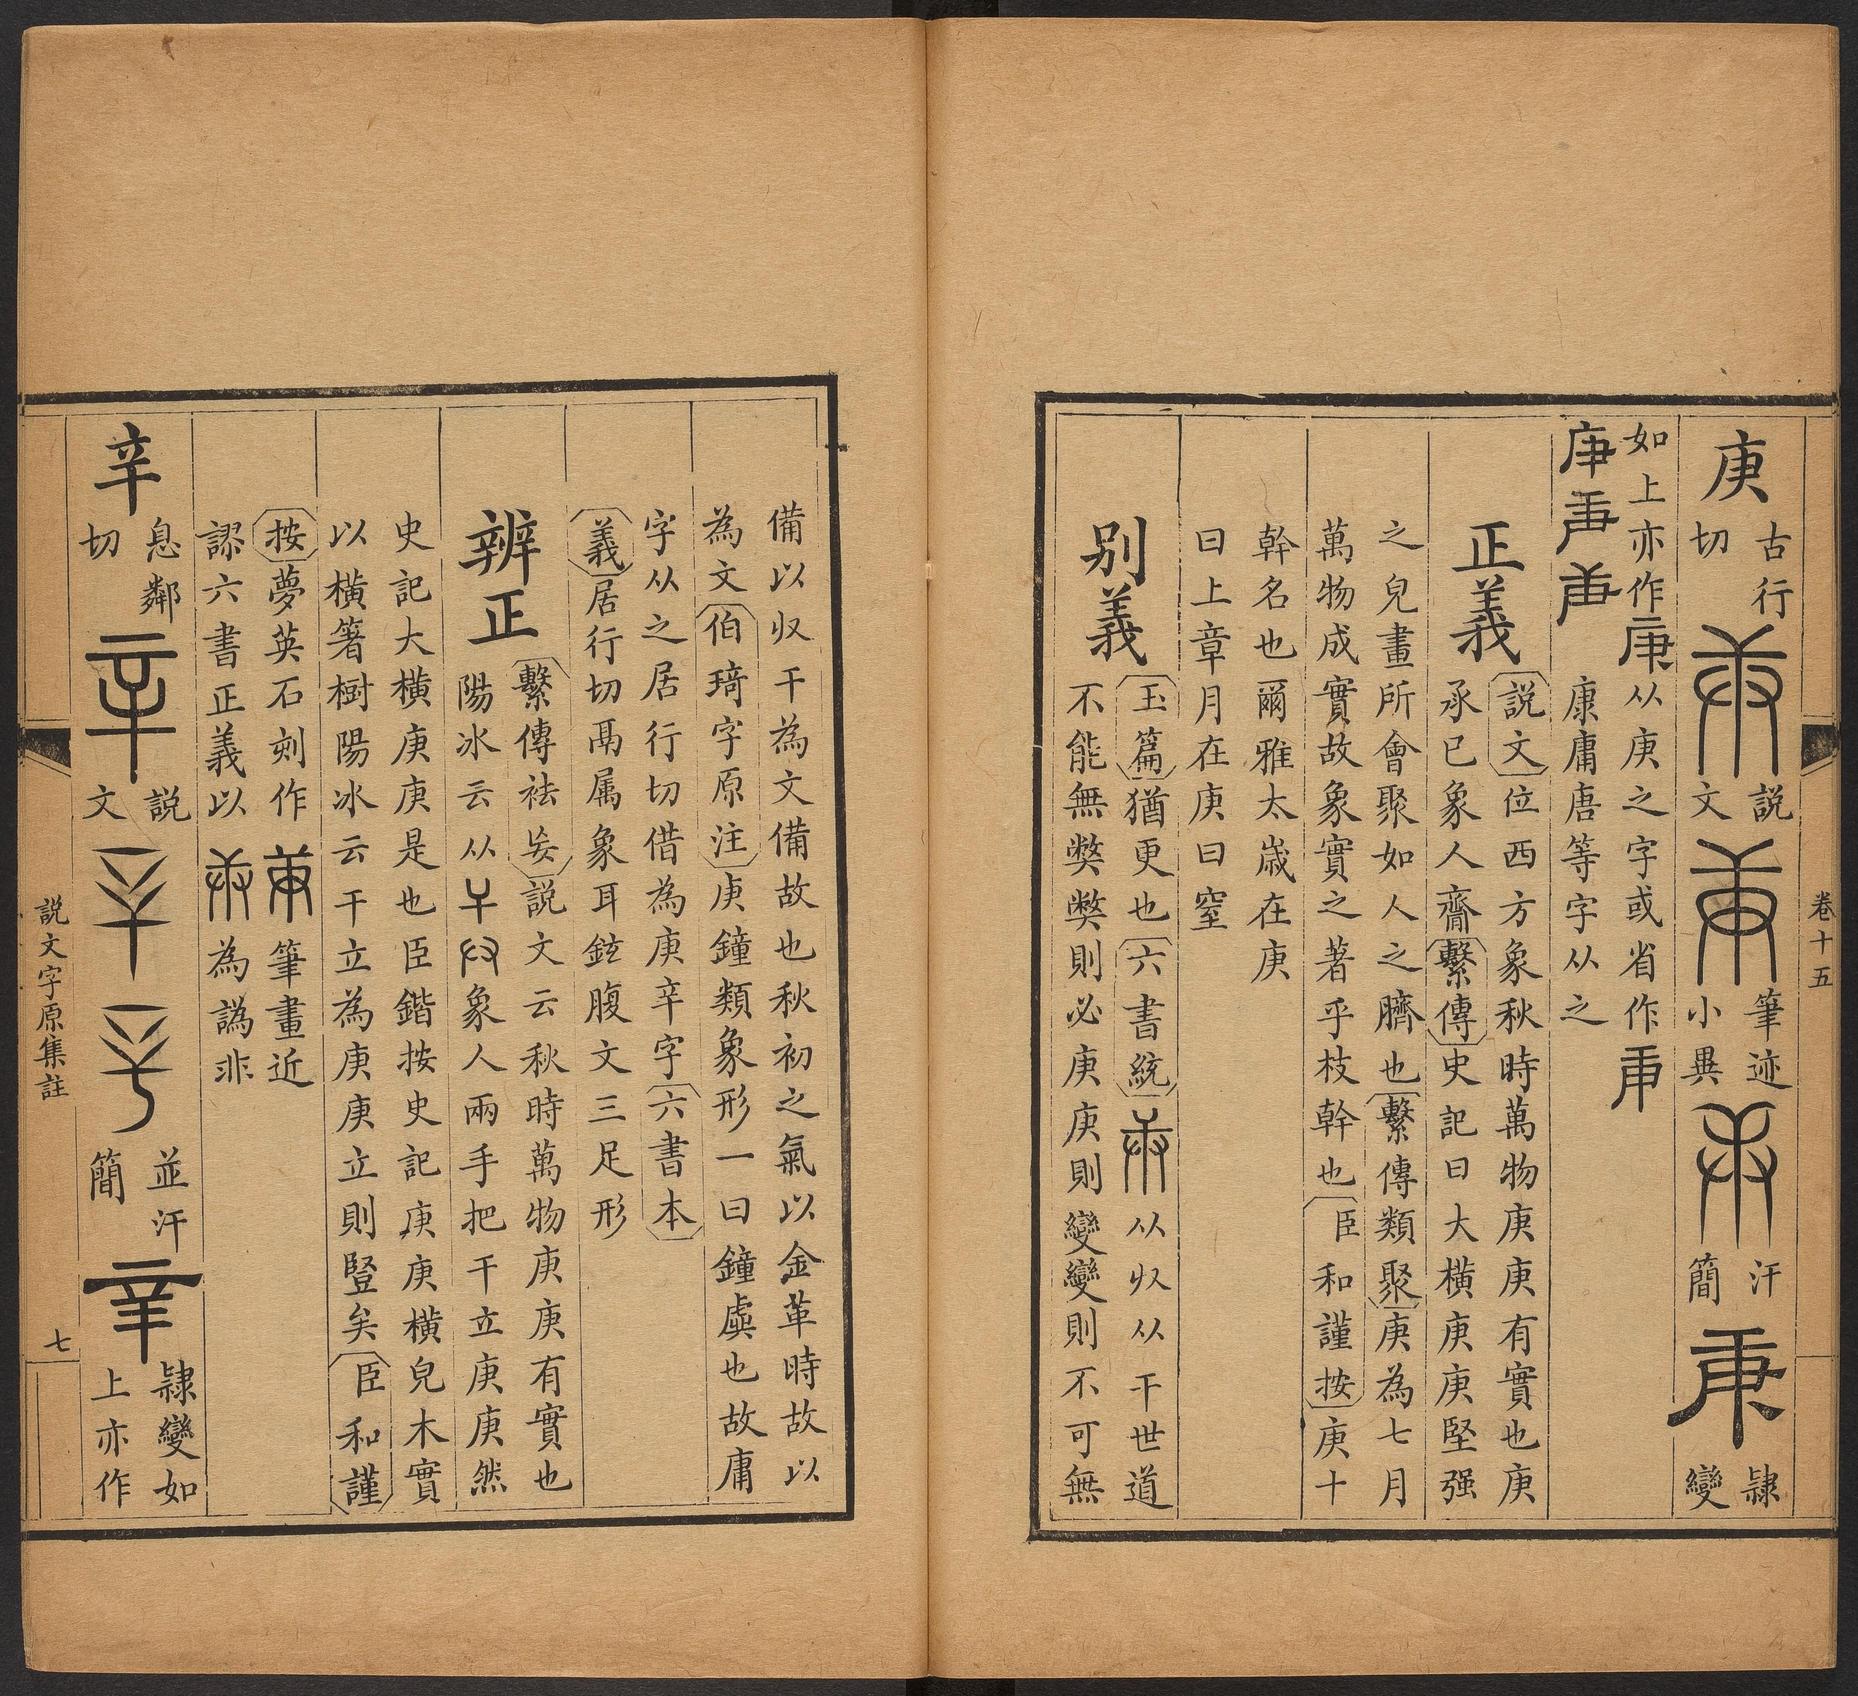 卷十五
庚 古行切 說文 筆迹小異 汗簡 隸變
如上亦作庚从庚之字或省作
康庸唐等字从之
正義 說文位西方象秋時萬物庚庚有實也庚
承已象人齎繫傳史記曰大橫庚庚堅强
之皃畫所會聚如人之臍也繫傳類聚庚為七月
萬物成實故象實之著乎枝幹也臣和謹按庚十
幹名也爾雅太歲在庚
曰上章月在庚曰窒
別義 玉篇猶更也六書統从収从干世道
不能無獘獘則必庚庚則變變則不可無
備以収干為文備故也秋初之氣以金革時故以
為文伯琦字原注庚鐘類象形一曰鐘虡也故庸
字从之居行切借為庚辛字六書本
義居行切鬲属象耳鉉腹文三足形
辨正 繫傳袪妄說文云秋時萬物庚庚有實也
陽冰云从象人兩手把干立庚庚然
史記大橫庚庚是也臣鍇按史記庚庚橫皃木實
以橫箸樹陽冰云干立為庚庚立則豎矣臣和謹
按夢英石刻作筆畫近
謬六書正義以為譌非
辛 息鄰切 說文 並汗簡 隸變如上亦作
說文字原集註
七